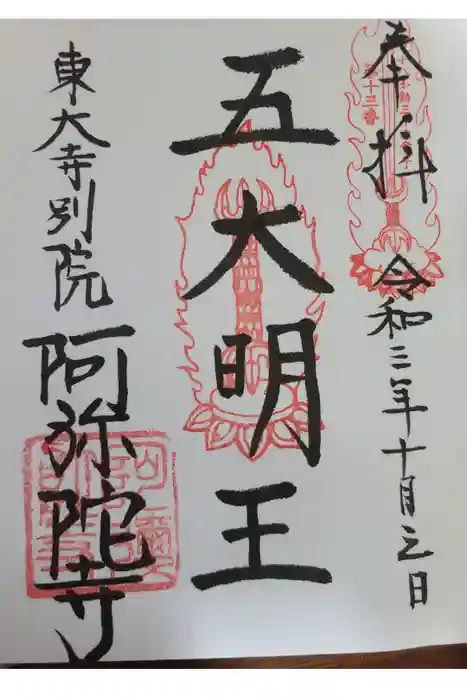 奉拝 令和三年十月三日
五大明王
東大寺別院 阿弥陀寺